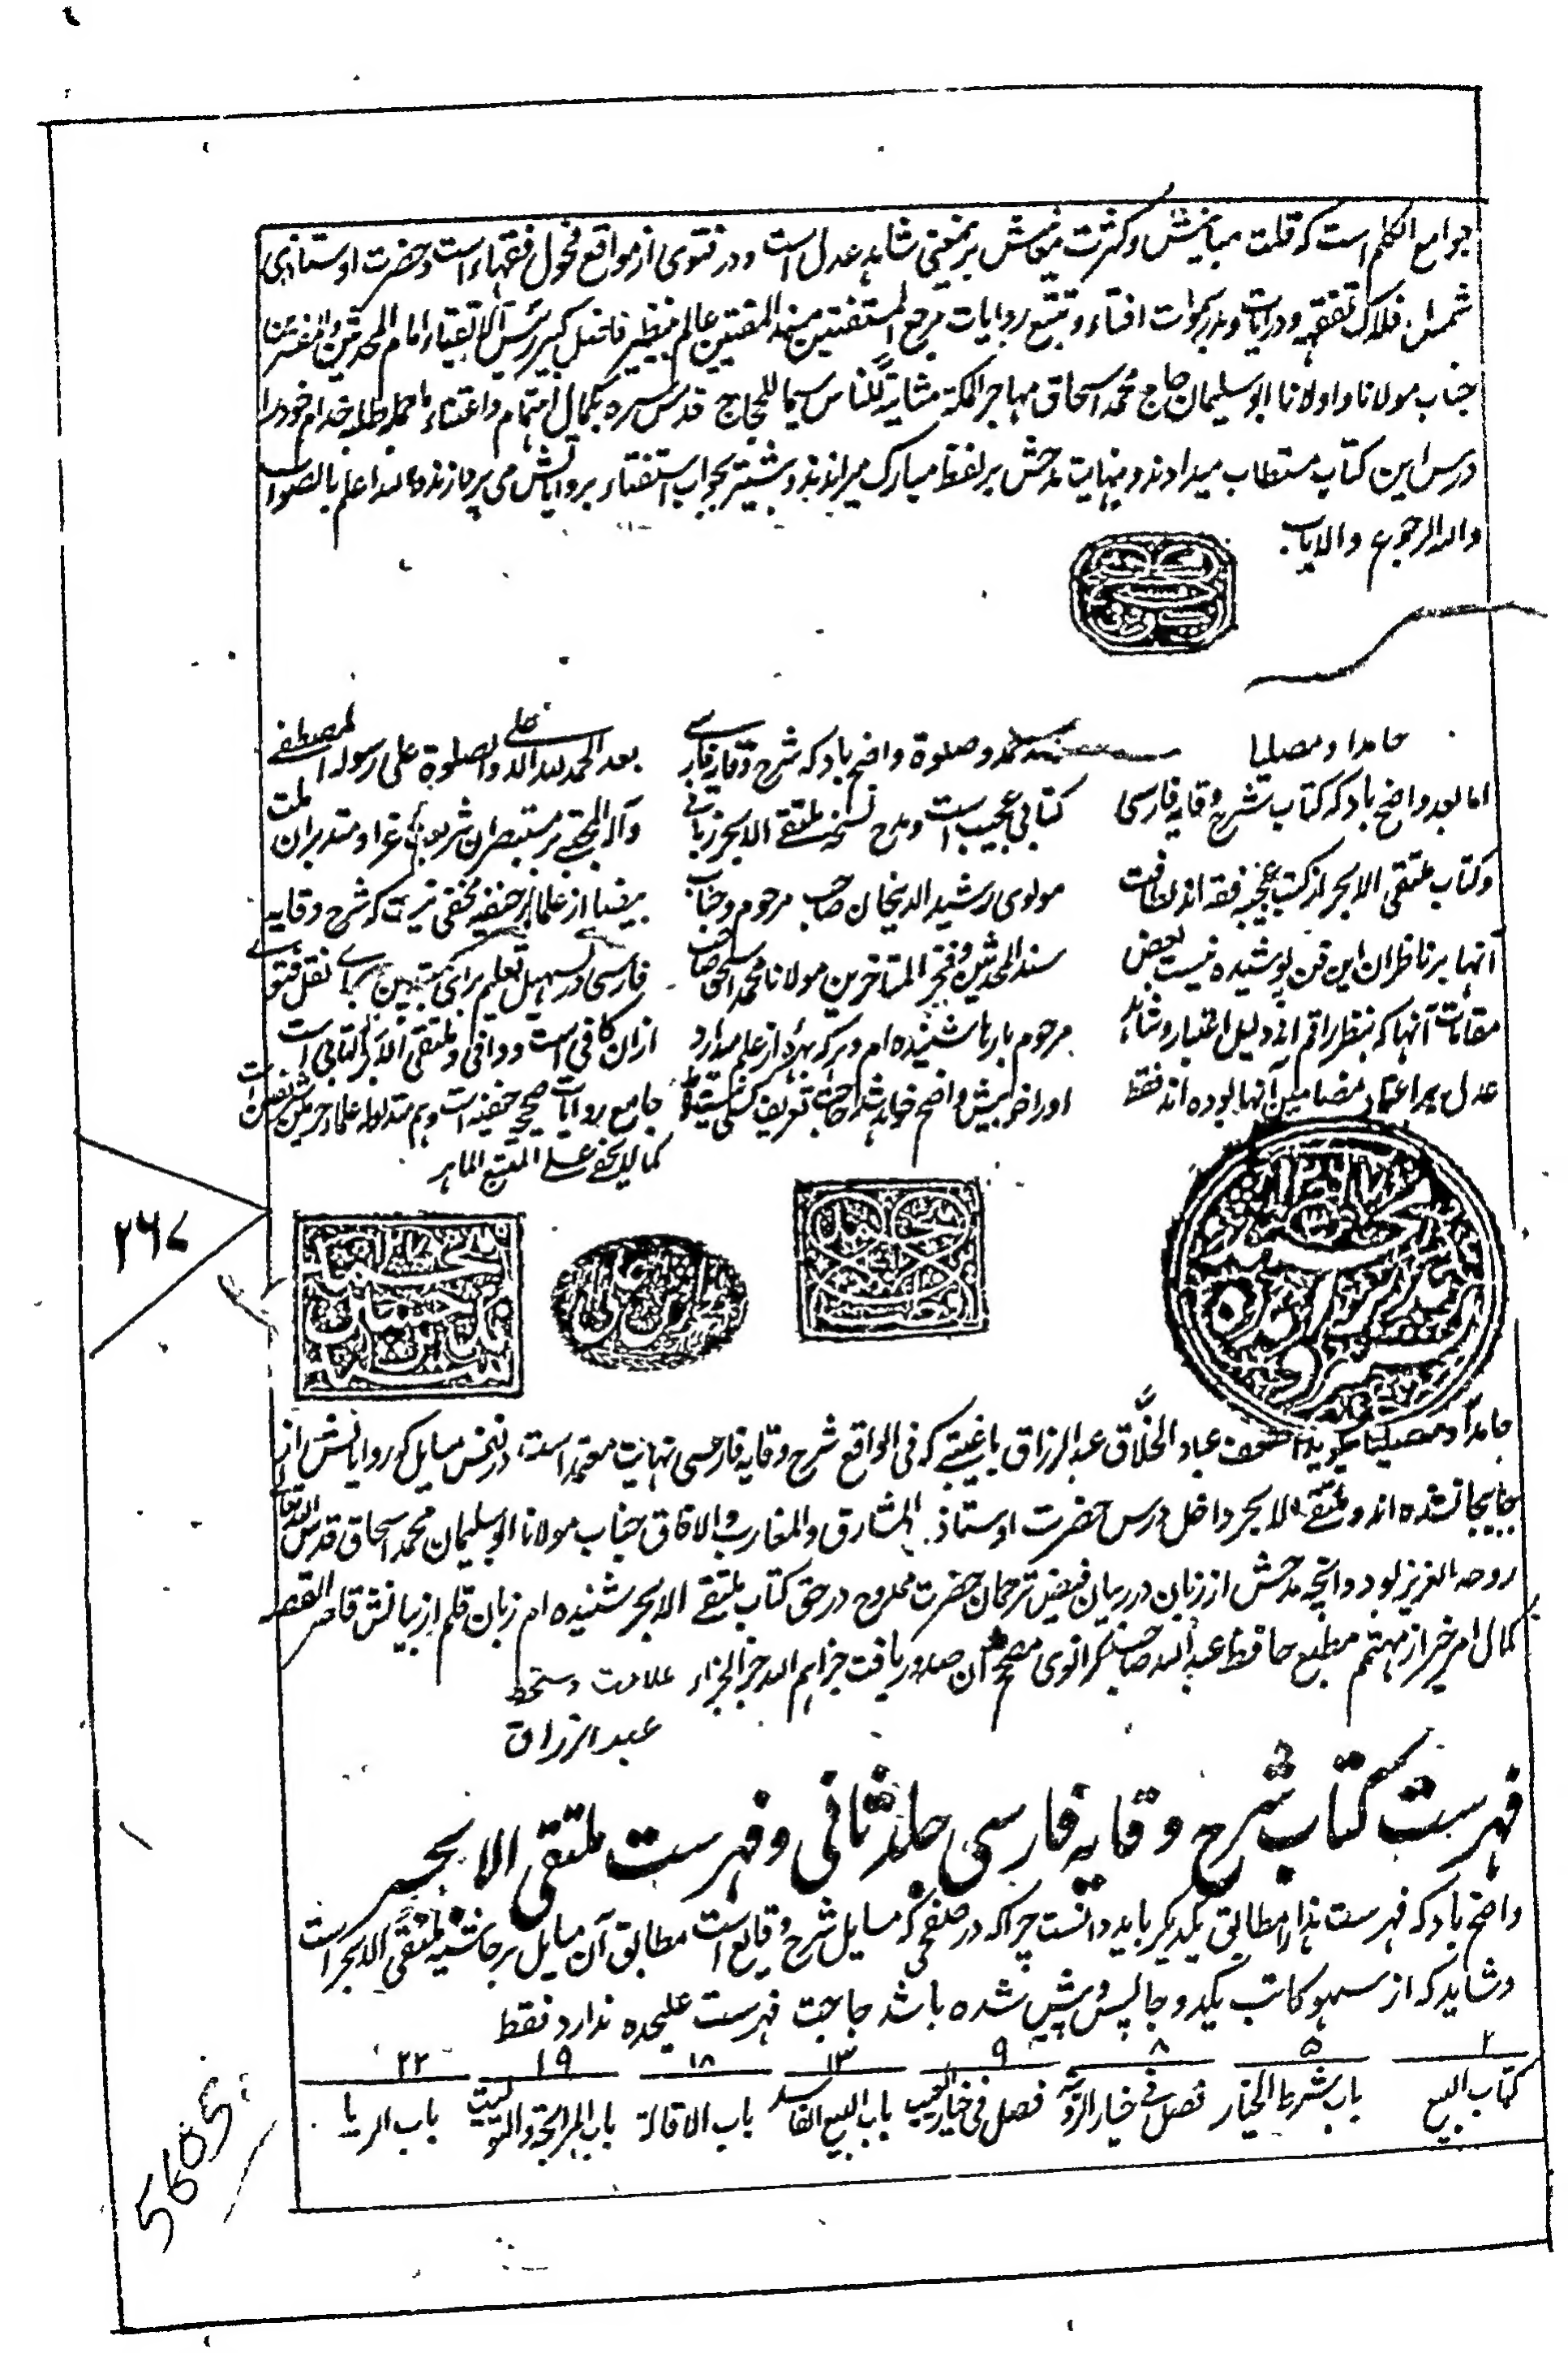 جوامع الکلم است که قلت مبانیش و کثرت معنیش برینمعنی شاهد عدل است و در فتوی از مواقع فحول فقهاء است و حضرت اوستاذی
شمس فلاک تفقه و درایت و بدر سموات افتاء و تتبع روایات مرجع المستفتین سند المفتین عالم بینظیر فاضل کبیر رئیس الاتقیاء امام المحدثین و المفسرین
جناب مولانا و اولانا ابو سلیمان حاج محمد اسحاق مهاجر المکة مثابة للناس سیما للحجاج قدس سره بکمال اهتمام و اعتناء ما جمله طلبه خدام خود را
درس این کتاب مستطاب میدادند و نهایت مدحش بر لفظ مبارک میراندند و بیشتر بجواب استفتاء بروایاتش می پردازند والله اعلم بالصواب
والیه الرجوع والایاب
حامدا و مصلیا
اما بعد واضح باد که کتاب شرح وقایه فارسی
و کتاب ملتقی الابحر از کتب عجیبه فقه اند لطافت
آنها بر ناظران این فن پوشیده نیست بعض
مقامات آنها که بنظر راقم آمد دلیل اعتبار و شاهد
عدل بر اعتماد مضامین آنها بوده اند فقط
بعد حمد و صلوة واضح باد که شرح وقایه فارسی
کتابی عجیب است و مدح نسخه ملتقی الابحر زبانی
مولوی رشید الدینخان صاحب مرحوم و جناب
سند المحدثین و فخر المتاخرین مولانا محمد اسحق صاحب
مرحوم بارها شنیده ام و هر که بهره از علم میدارد
او را خوبیش واضح خواهد شد حاجت تعریف کسی نیست
بعد الحمد لله العلی والصلوة علی رسوله المصطفے
و آله المجتبے بر مستبصران شریعت غرا و متدبران ملت
بیضا از علماء حنفیه مخفی نیست که شرح وقایه
فارسی در تسهیل تعلیم برای مبتدیین و برای نقل فتوی
ازان کافی است و وافی و ملتقی الابحر کتابی است
جامع روایات صحیحه حنفیه است و هم متداوله علماء حرمین شریفین است
کما لا یخفے علی المتتبع الماهر
۲۶۷
حامداً و مصلیا میگوید اضعف عباد الخلاق عبد الرزاق باغیتے که فی الواقع شرح وقایه فارسی نهایت معتمد است در نفس مسایل که روایاتش از
جابجا شده اند و ملتقے الابحر داخل درس حضرت اوستاذ المشارق والمغارب والافاق جناب مولانا ابو سلیمان محمد اسحاق قدس الله تعالی
روحه العزیز بود و آنچه مدحش از زبان درربیان فیض ترجمان حضرت ممدوح در حق کتاب ملتقے الابحر شنیده ام زبان قلم از بیانش قاصر القصه
کمال امر خیر از مهتمم مطبع حافظ عبد الله صاحب کرانوی مصحح آن صدور یافت جزاهم الله خیر الجزاء علامت دستخط
عبد الرزاق
فهرست کتاب شرح وقایه فارسی جلد ثانی و فهرست ملتقی الابحر
واضح باد که فهرست هذا را مطابق یکدیگر باید دانست چرا که در صفحی که مسایل شرح وقایع است مطابق آن مسایل بر حاشیه ملتقی الابحر است
و شاید که از سهو کاتب یکدو جا پس و پیش شده باشد حاجت فهرست علیحده ندارد فقط
۲ ۵ ۸ ۹ ۱۳ ۱۸ ۱۹ ۲۲
کتاب البیع باب شرط الخیار فصل فی خیار الرؤیة فصل فی خیار العیب باب البیع الفاسد باب الاقالة باب المرابحة والتولیت باب الربا
5605